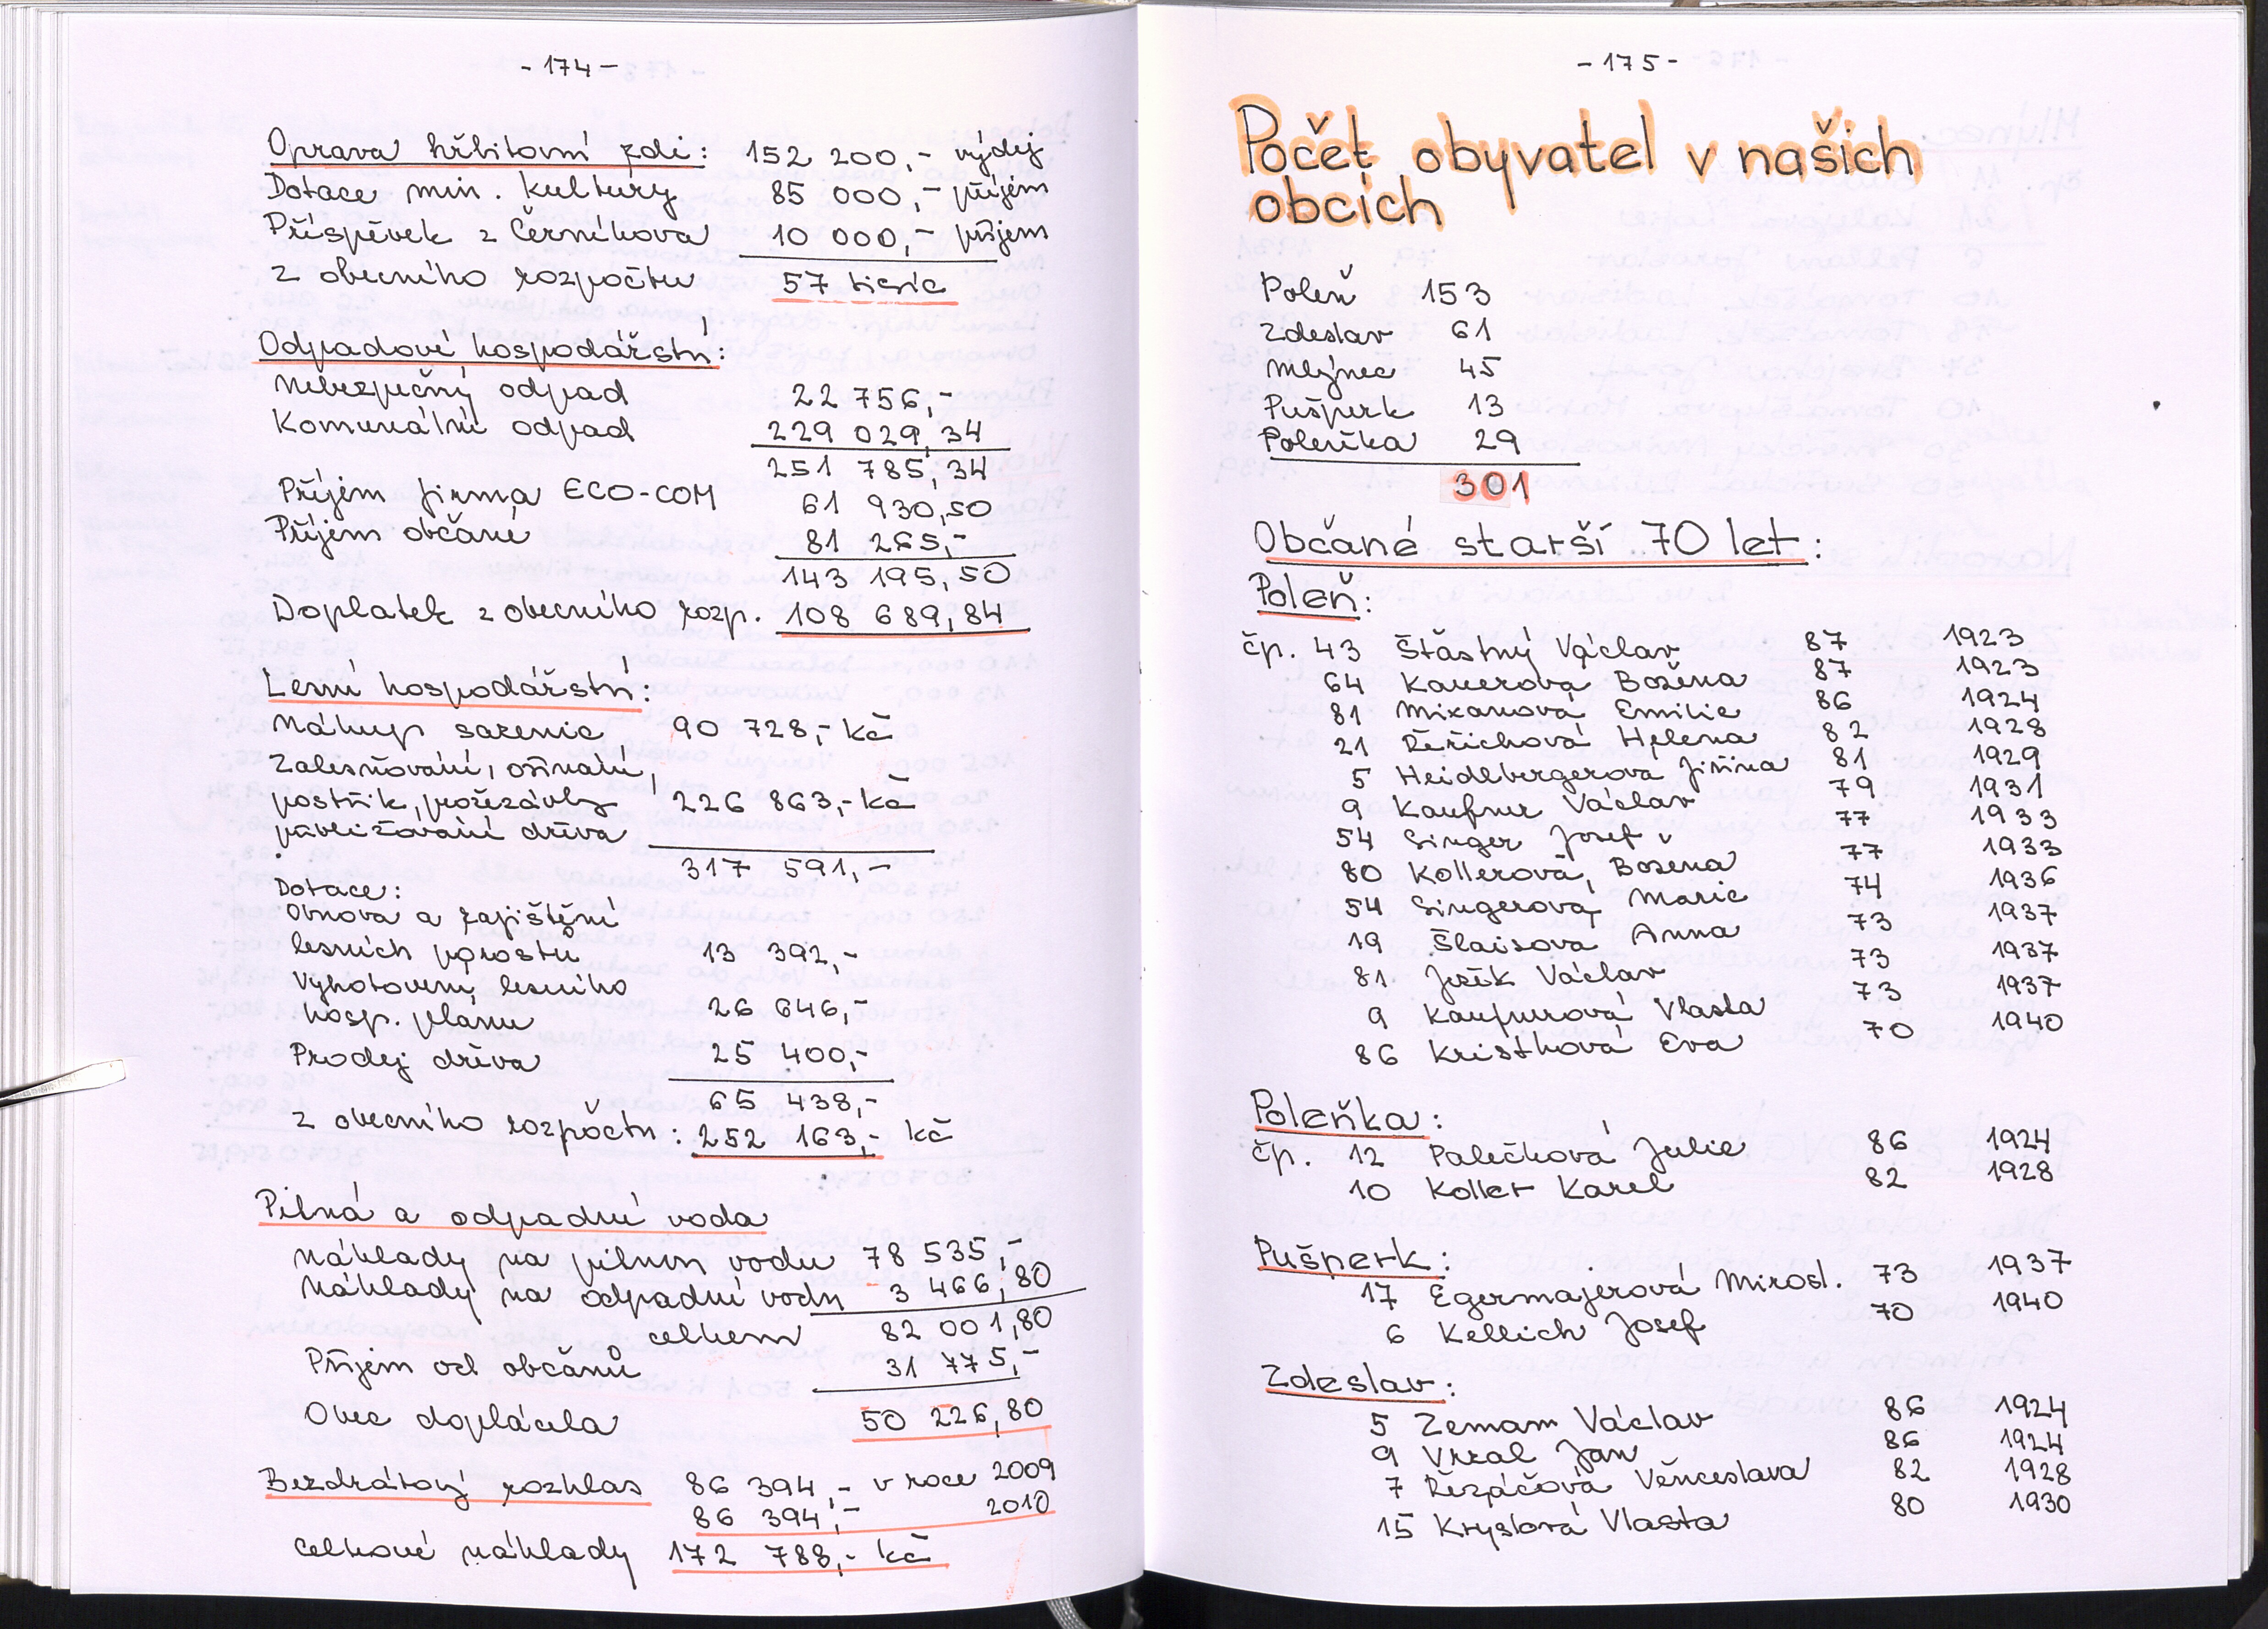 - 174 -
Oprava hřbitovní zdi: 152 200,- výdej
Dotace min. kultury 85 000,- příjem
Příspěvek z Černíkova 10 000,- příjem
z obecního rozpočtu 57 tisíc
Odpadové hospodářství:
Nebezpečný odpad 22 756,-
Komunální odpad 229 029,34
251 785,34
Příjem firma ECO-COM 61 930,50
Příjem občané 81 265,-
143 195,50
Doplatek z obecního rozp. 108 689,84
Lesní hospodářství:
Nákup sazenic 90 728,- kč
Zalesňování, ožínání,
postřik, prořezávky 226 863,- kč
přibližování dříva
317 591,-
Dotace:
Obnova a zajištění
lesních porostů 13 392,-
Vyhotovení lesního
hosp. plánu 26 646,-
Prodej dříva 25 400,-
65 438,-
z obecního rozpočtu: 252 163,- kč
Pitná a odpadní voda
Náklady na pitnou vodu 78 535,-
Náklady na odpadní vodu 3 466,80
celkem 82 001,80
Příjem od občanů 31 775,-
Obec doplácela 50 226,80
Bezdrátový rozhlas 86 394,- v roce 2009
86 394,- 2010
celkové náklady 172 788,- kč
- 175 -
Počet obyvatel v našich
obcích
Poleň 153
Zdeslav 61
Mlýnec 45
Pušperk 13
Poleňka 29
301
Občané starší 70 let:
Poleň:
čp. 43 Šťástný Václav 87 1923
64 Kauerová Božena 87 1923
81 Mixanová Emilie 86 1924
21 Řeřichová Helena 82 1928
5 Heidlbergerová Jiřina 81 1929
9 Kaufner Václav 79 1931
54 Singer Josef 77 1933
80 Kollerová Božena 77 1933
54 Singerová Marie 74 1936
19 Šlaisová Anna 73 1937
81 Ježík Václav 73 1937
9 Kaufnerová Vlasta 73 1937
86 Kristková Eva 70 1940
Poleňka:
čp. 12 Palečková Julie 86 1924
10 Koller Karel 82 1928
Pušperk:
17 Egermajerová Mirosl. 73 1937
6 Kellich Josef 70 1940
Zdeslav:
5 Zemam Václav 86 1924
9 Vrzal Jan 86 1924
7 Řezáčová Věnceslava 82 1928
15 Kryslová Vlasta 80 1930